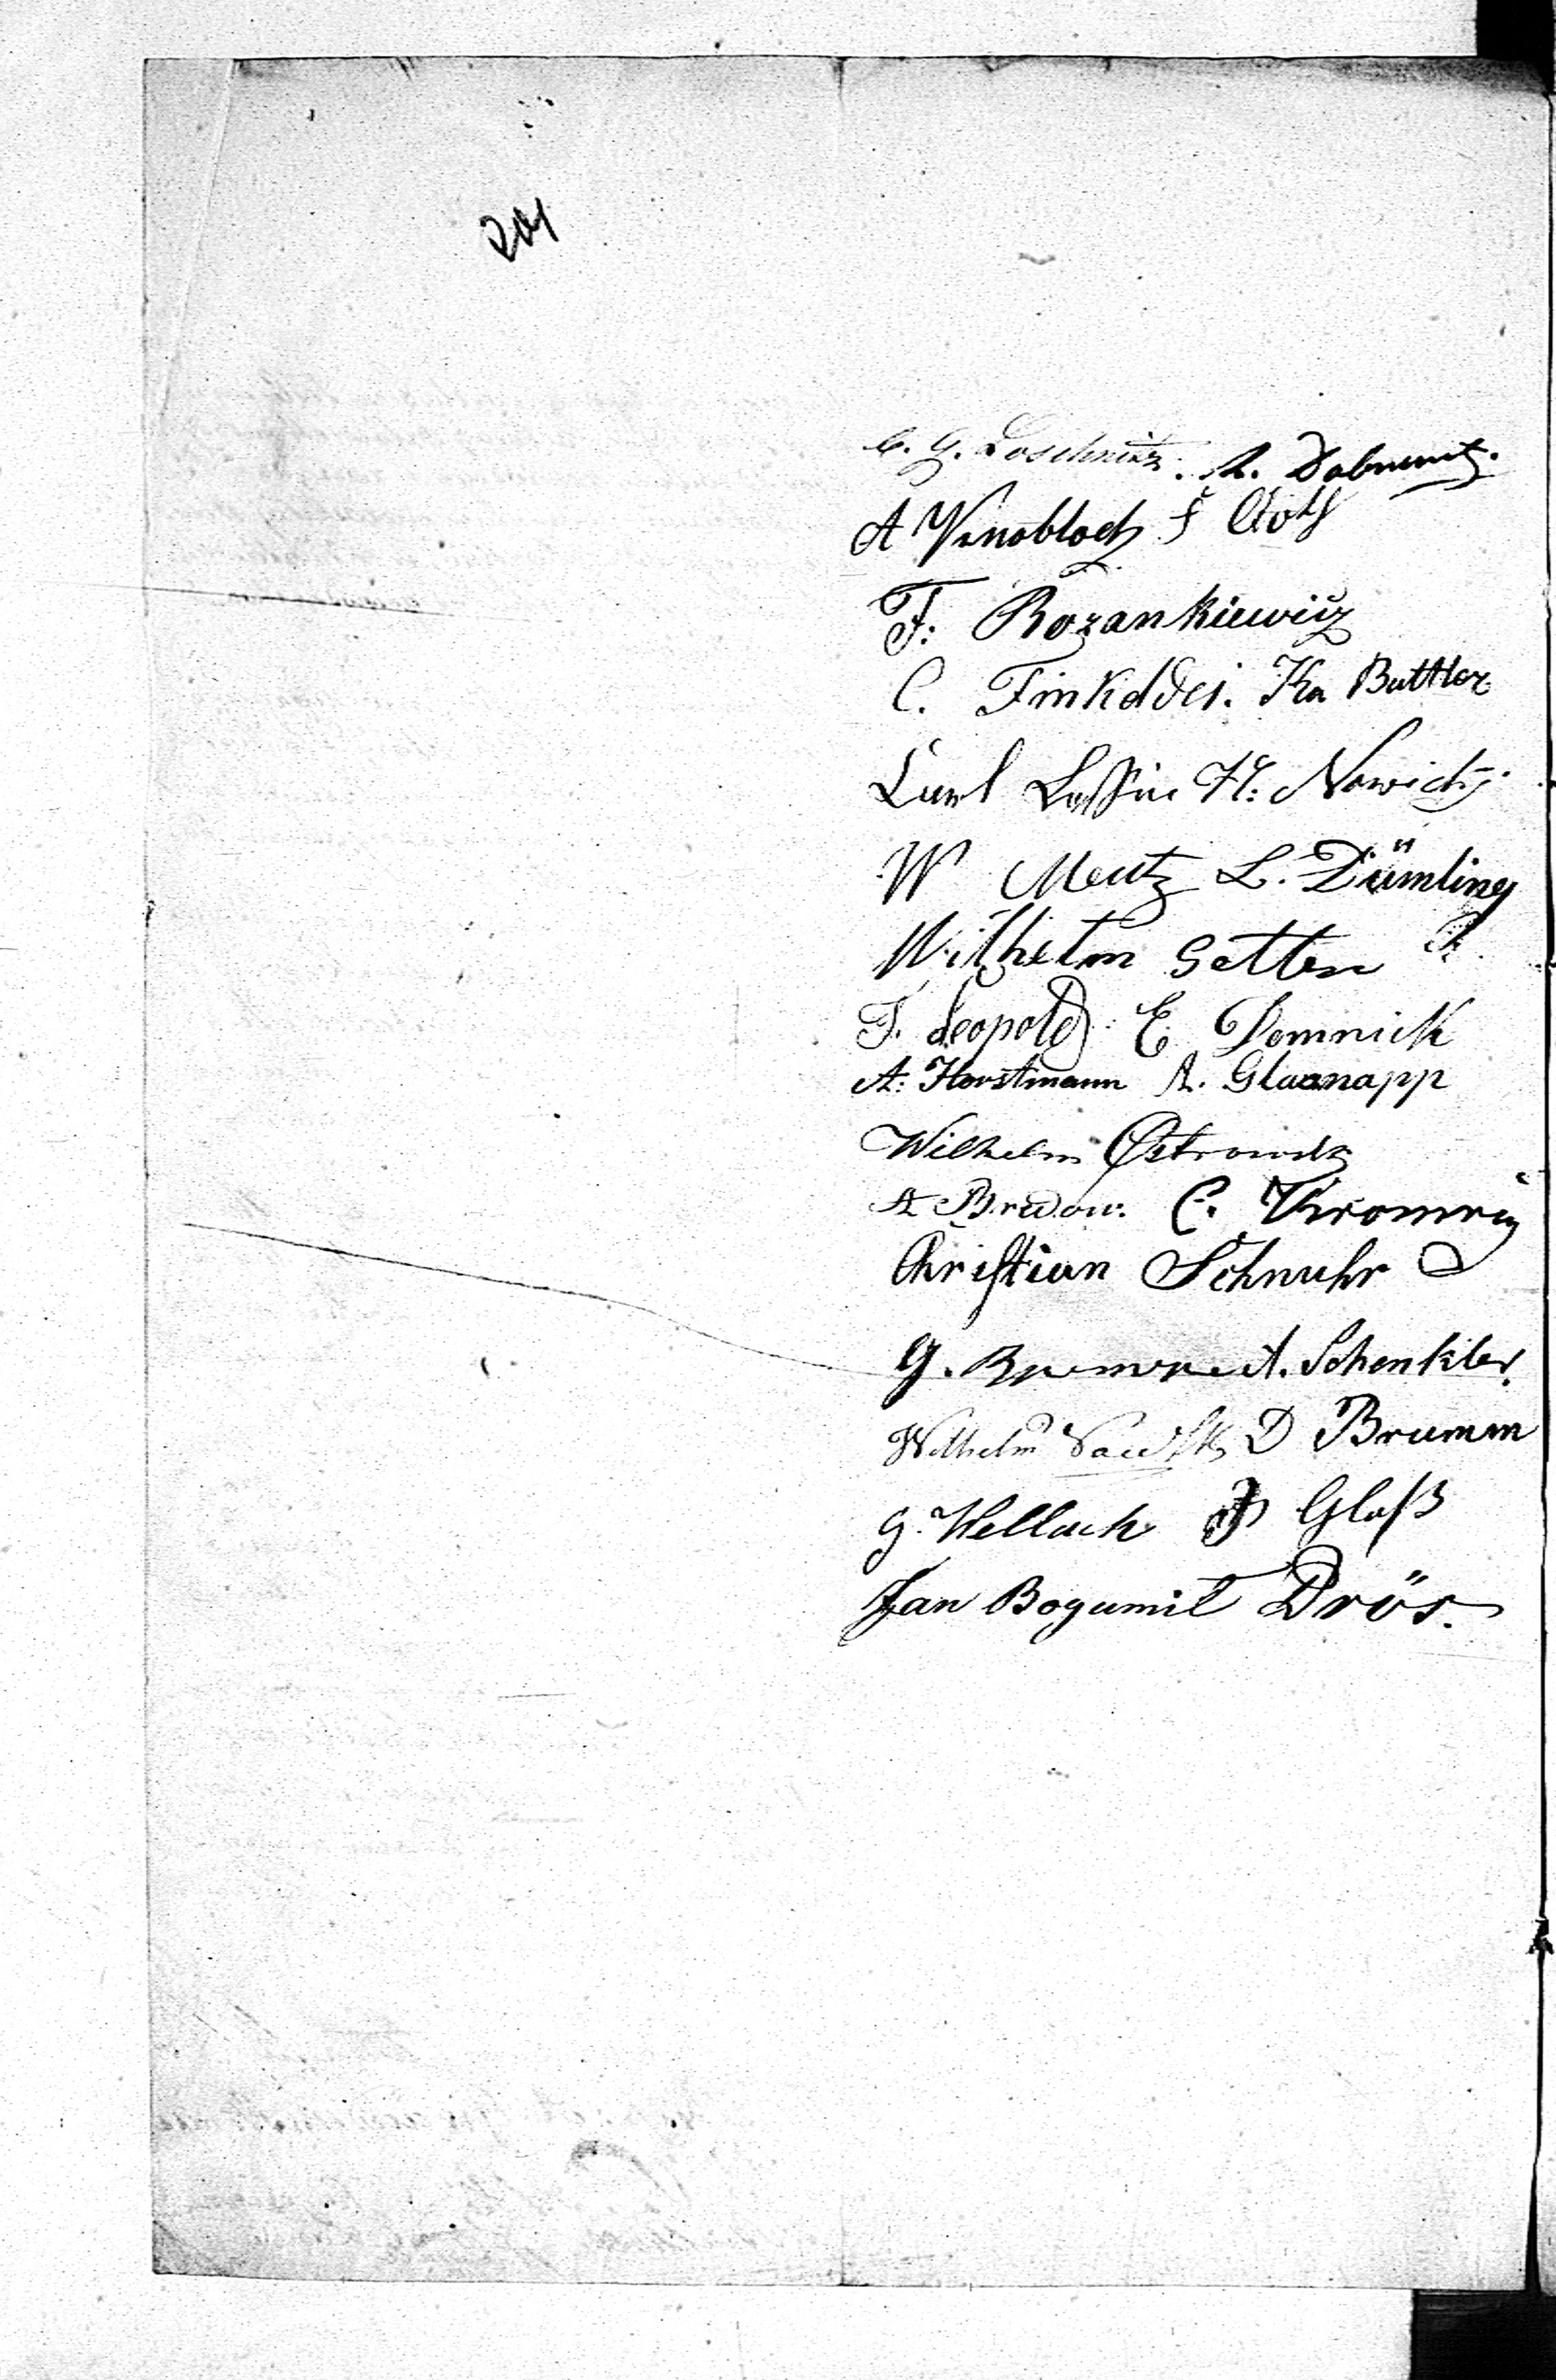 201
C. G. Loschnitz. A.
A Knobloch F Golf
F. Rozankiewicz
C. Finkeldei. Ka Buttler
Carl Lassin H: Nowicky.
W Meutz L. Dümling
Wilhelm Setten
F. Leopold. E. Domnick
A. Horstmann A. Glasnapp
Wilhelm Ostrowsky
A Bredow. C. Kromrey
Christian Schnuhr
G. A. Schenkler.
Wilhelm D Brumm
G. Wellach Glaß
Jan Bogumil Drös.